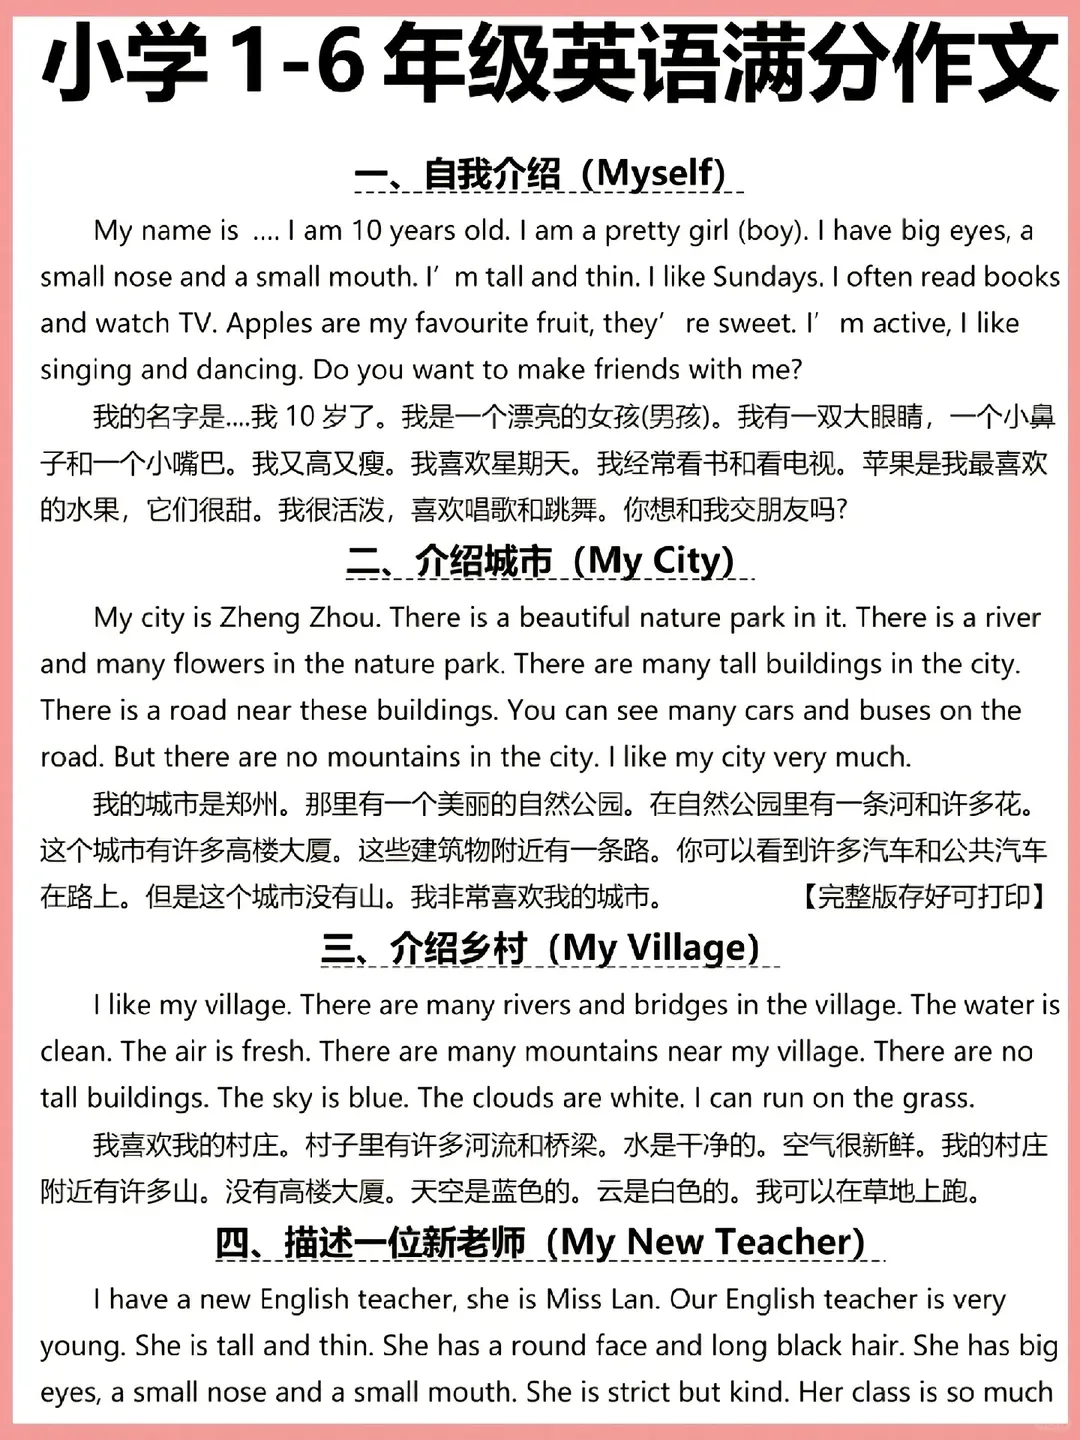 小学1-6年级英语满分作文
一、自我介绍（Myself）
My name is .... I am 10 years old. I am a pretty girl (boy). I have big eyes, a
small nose and a small mouth. I’m tall and thin. I like Sundays. I often read books
and watch TV. Apples are my favourite fruit, they’re sweet. I’m active, I like
singing and dancing. Do you want to make friends with me?
我的名字是....我 10 岁了。我是一个漂亮的女孩(男孩)。我有一双大眼睛，一个小鼻
子和一个小嘴巴。我又高又瘦。我喜欢星期天。我经常看书和看电视。苹果是我最喜欢
的水果，它们很甜。我很活泼，喜欢唱歌和跳舞。你想和我交朋友吗?
二、介绍城市（My City）
My city is Zheng Zhou. There is a beautiful nature park in it. There is a river
and many flowers in the nature park. There are many tall buildings in the city.
There is a road near these buildings. You can see many cars and buses on the
road. But there are no mountains in the city. I like my city very much.
我的城市是郑州。那里有一个美丽的自然公园。在自然公园里有一条河和许多花。
这个城市有许多高楼大厦。这些建筑物附近有一条路。你可以看到许多汽车和公共汽车
在路上。但是这个城市没有山。我非常喜欢我的城市。 【完整版存好可打印】
三、介绍乡村（My Village）
I like my village. There are many rivers and bridges in the village. The water is
clean. The air is fresh. There are many mountains near my village. There are no
tall buildings. The sky is blue. The clouds are white. I can run on the grass.
我喜欢我的村庄。村子里有许多河流和桥梁。水是干净的。空气很新鲜。我的村庄
附近有许多山。没有高楼大厦。天空是蓝色的。云是白色的。我可以在草地上跑。
四、描述一位新老师（My New Teacher）
I have a new English teacher, she is Miss Lan. Our English teacher is very
young. She is tall and thin. She has a round face and long black hair. She has big
eyes, a small nose and a small mouth. She is strict but kind. Her class is so much